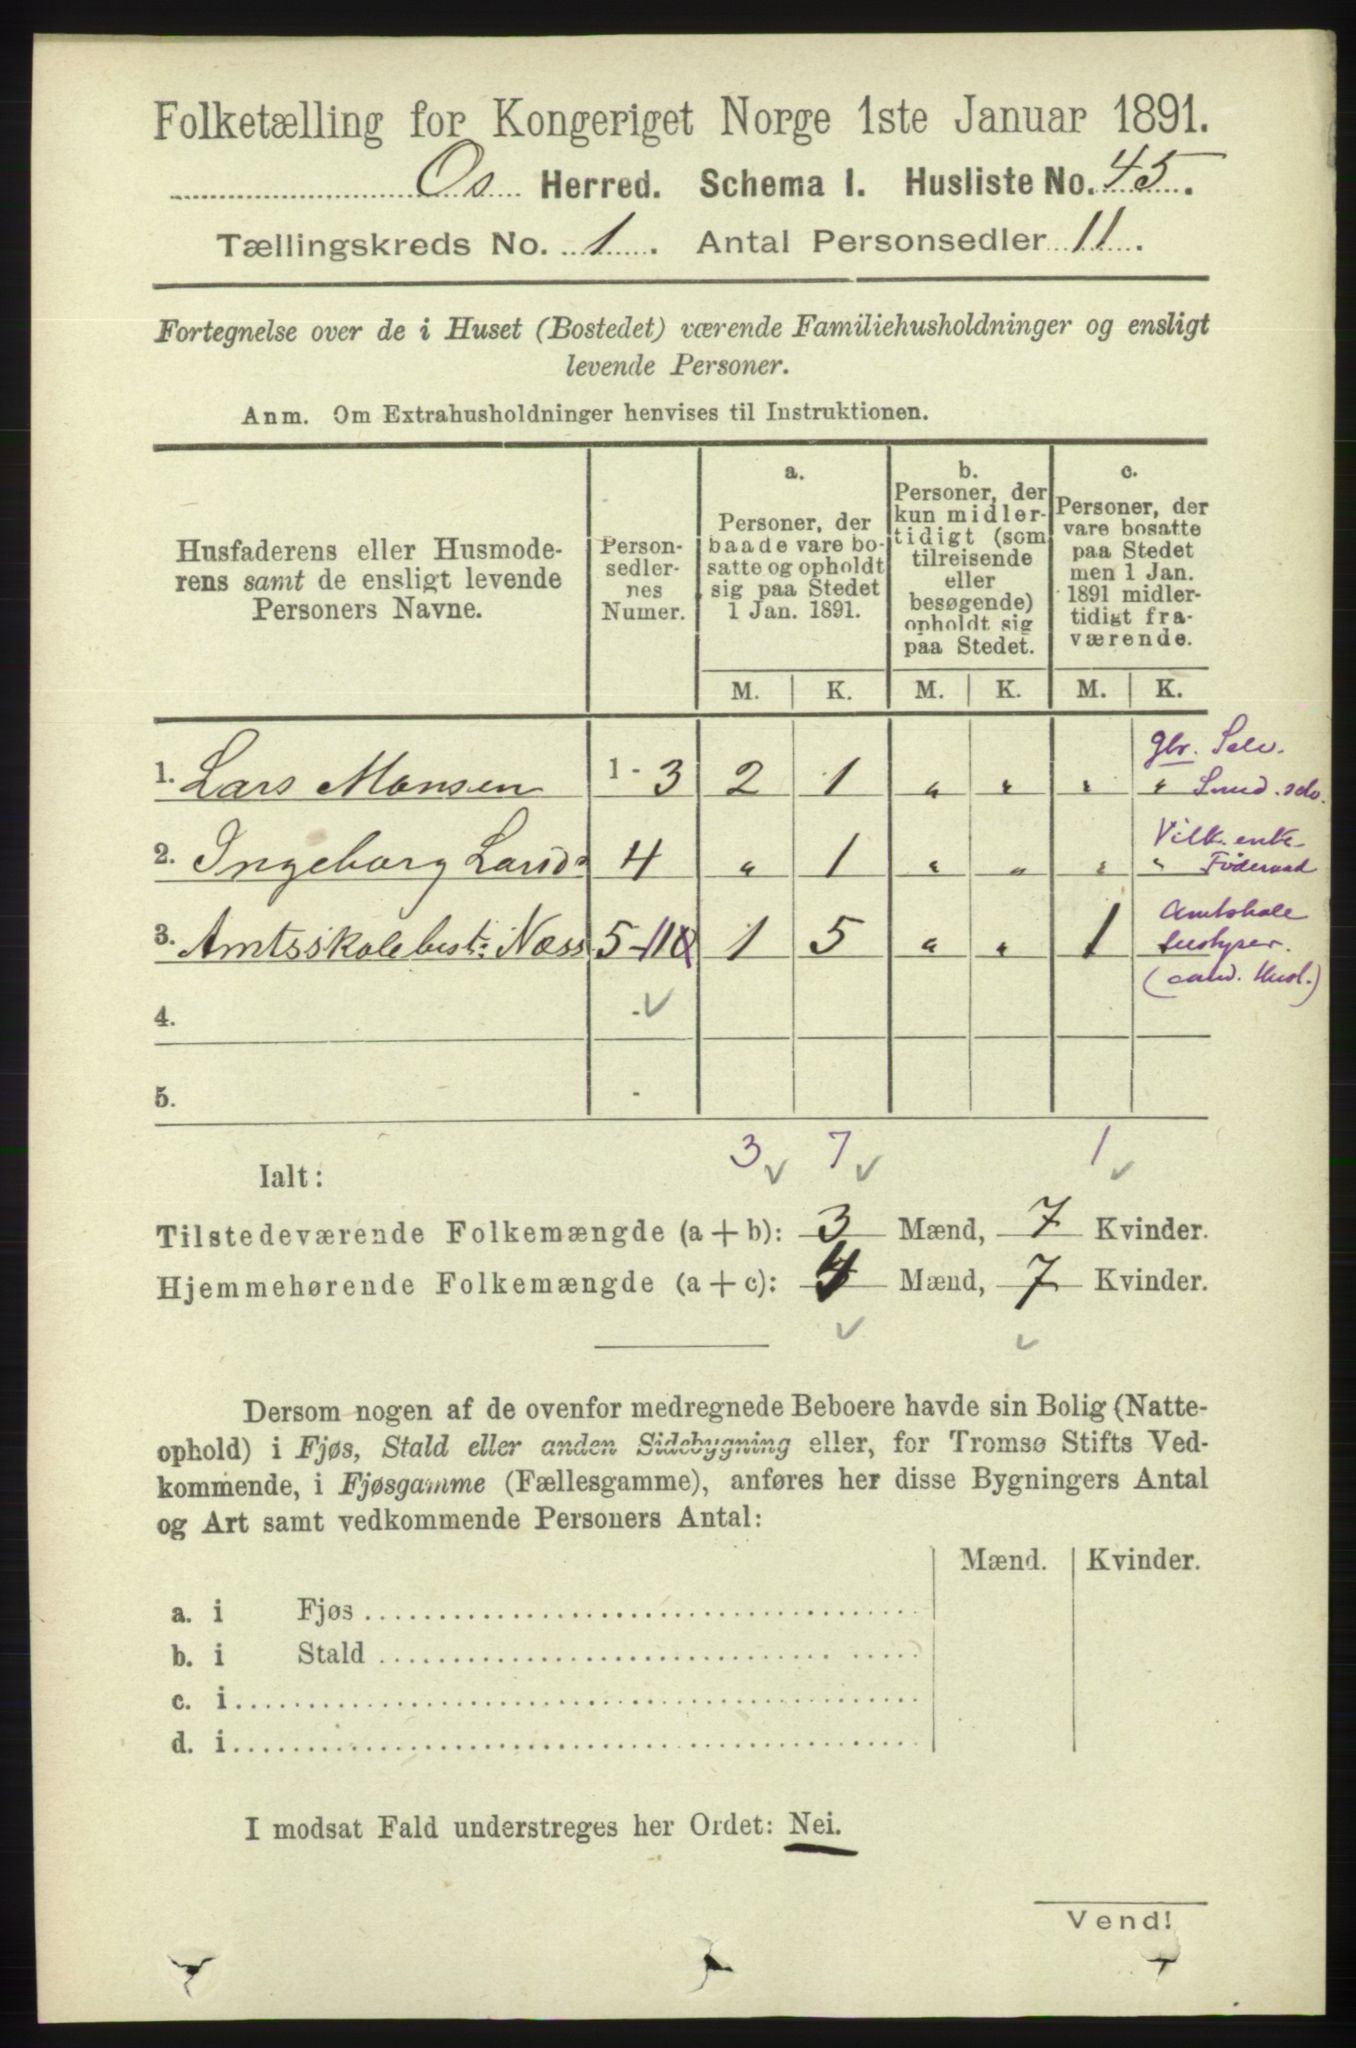 Folketælling for Kongeriget Norge 1ste Januar 1891.
Os Herred. Schema I. Husliste No. 45.
Tællingskreds No. 1. Antal Personsedler 11.
Fortegnelse over de i Huset (Bostedet) værende Familiehusholdninger og ensligt
levende Personer.
Anm. Om Extrahusholdninger henvises til Instruktionen.
Husfaderens eller Husmode-
rens samt de ensligt levende
Personers Navne.
Person-
sedler-
nes
Numer.
a.
Personer, der
baade vare bo-
satte og opholdt
sig paa Stedet
1 Jan. 1891.
b.
Personer, der
kun midler-
tidigt (som
tilreisende
eller
besøgende)
opholdt sig
paa Stedet.
c.
Personer, der
vare bosatte
paa Stedet
men 1 Jan.
1891 midler-
tidigt fra-
værende.
M. K. M. K. M. K.
gbr. Selv.
1. Lars Monsen 1 - 3 2 1 " " " " Smed. selv.
Vilk. enke
2. Ingeborg Larsd: 4 " 1 " " " " Føderaad
Amtskole
3. Amtsskolebest: Næss 5-11 1 5 " " 1 bestyrer.
(cand. )
4. -
5. -
3 7 1
Ialt:
Tilstedeværende Folkemængde (a + b): 3 Mænd, 7 Kvinder.
Hjemmehørende Folkemængde (a + c): 4 Mænd, 7 Kvinder.
Dersom nogen af de ovenfor medregnede Beboere havde sin Bolig (Natte-
ophold) i Fjøs, Stald eller anden Sidebygning eller, for Tromsø Stifts Ved-
kommende, i Fjøsgamme (Fællesgamme), anføres her disse Bygningers Antal
og Art samt vedkommende Personers Antal:
Mænd. Kvinder.
a. i Fjøs
b. i Stald
c. i
d. i
I modsat Fald understreges her Ordet: Nei.
Vend!